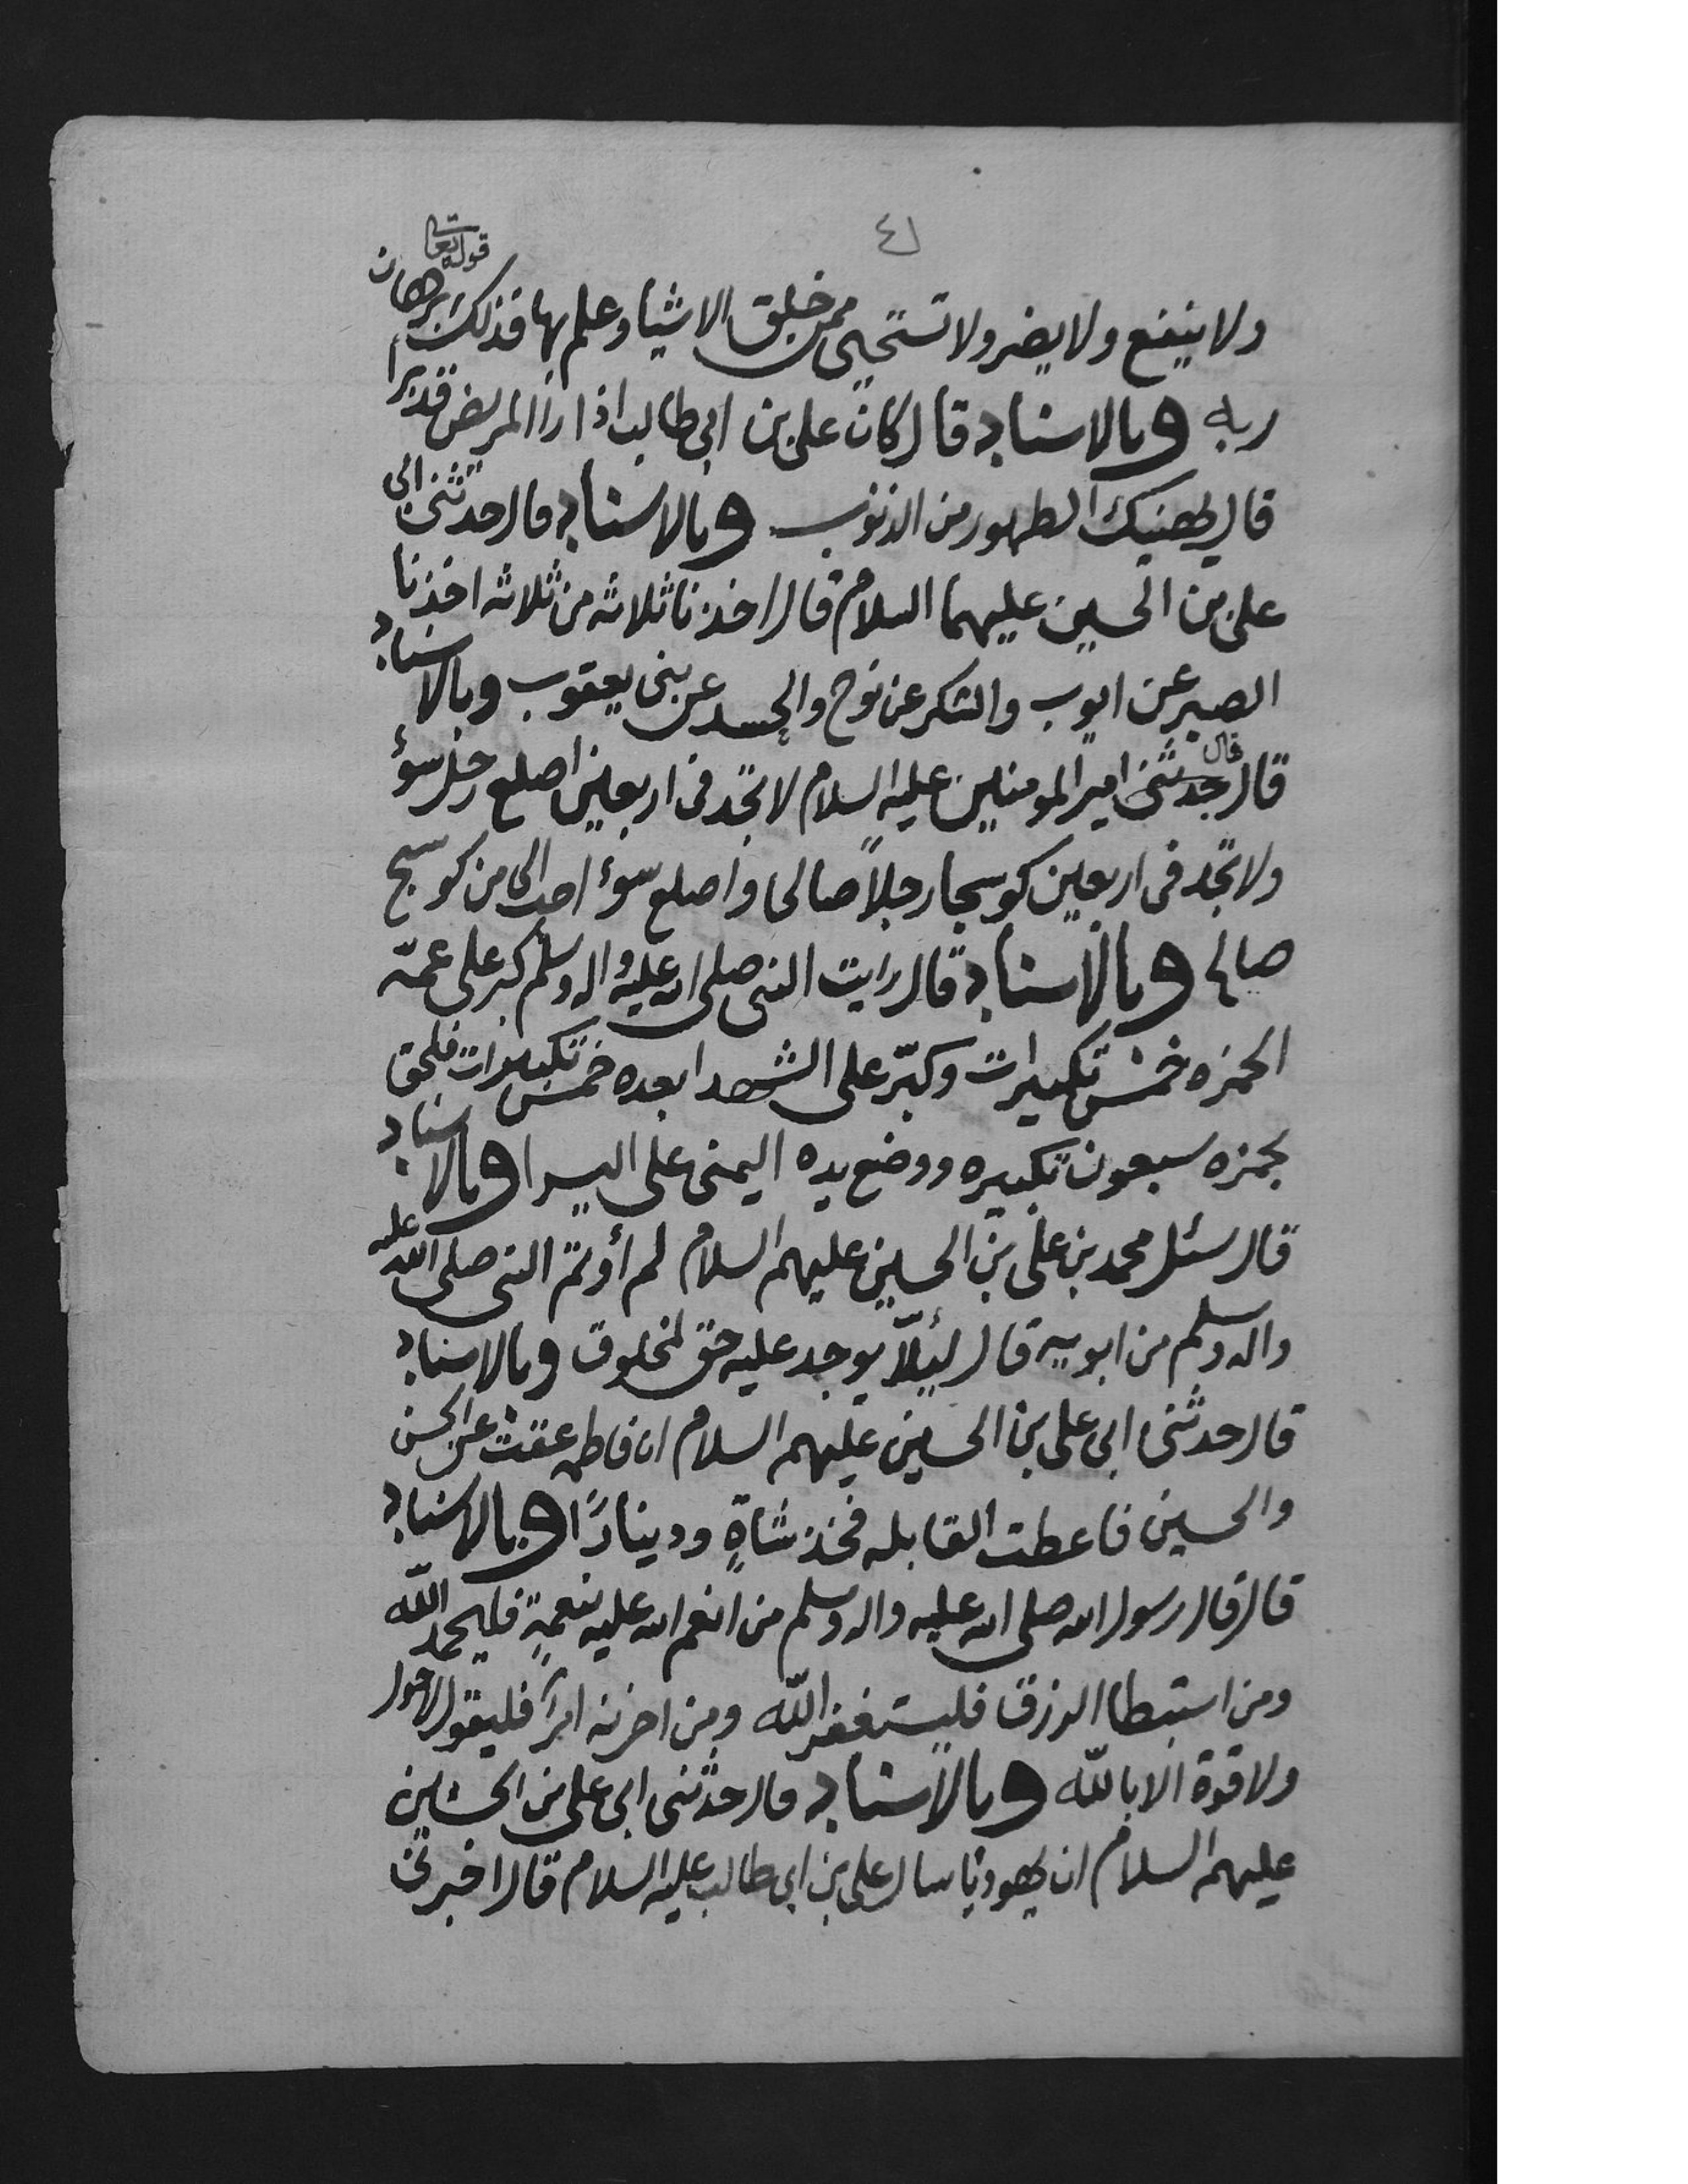 ٤١
ولا ينفع ولا يضر ولا تستحيى ممن خلق الاشيا وعلم بها فذلك قوله تعا برهان
ربه وبالاسناد قال كان على بن ابى طالب اذا راا المريض قد برا
قال يهنيك الطهور من الذنوب وبالاسناد قال حدثنى ابى
على بن الحسين عليهما السلام قال اخذنا ثلاثه من ثلاثه اخذنا
الصبر عن ايوب والشكر عن نوح والحسد عن بنى يعقوب وبالاسناد
قال حدثنى قال امير المومنين عليه السلام لا تجد فى اربعين اصلع رجل سوء
ولا تجد فى اربعين كوسجا رجلاً صالحا واصلع سوء احب الى من كوسج
صالح وبالاسناد قال رايت النبى صلى الله عليه واله وسلم كبر على عمّه
الحمزه خمس تكبيرات وكبّر على الشهدا بعده خمس تكبيرات فلحق
بحمزه سبعون تكبيره ووضع يده اليمنى على اليسرا وبالاسناد
قال سئل محمد بن على بن الحسين عليهم السلام لم أوتم النبى صلى الله عليه
واله وسلم من ابويه قال لئلّا يوجد عليه حق لمخلوق وبالاسناد
قال حدثنى ابى على بن الحسين عليهم السلام ان فاطمه عقت عن الحسن
والحسين فاعطت القابله فخذ شاةٍ ودينارًا وبالاسناد
قال قال رسول الله صلى الله عليه واله وسلم من انعم الله عليه نعمةٍ فليحمد الله
ومن استبطا الرزق فليستغفر الله ومن احزنه امرًا فليقول لا حول
ولا قوة الا بالله وبالاسناد قال حدثنى ابى على بن الحسين
عليهم السلام ان يهوديا سال على بن ابى طالب عليه السلام قال اخبرنى